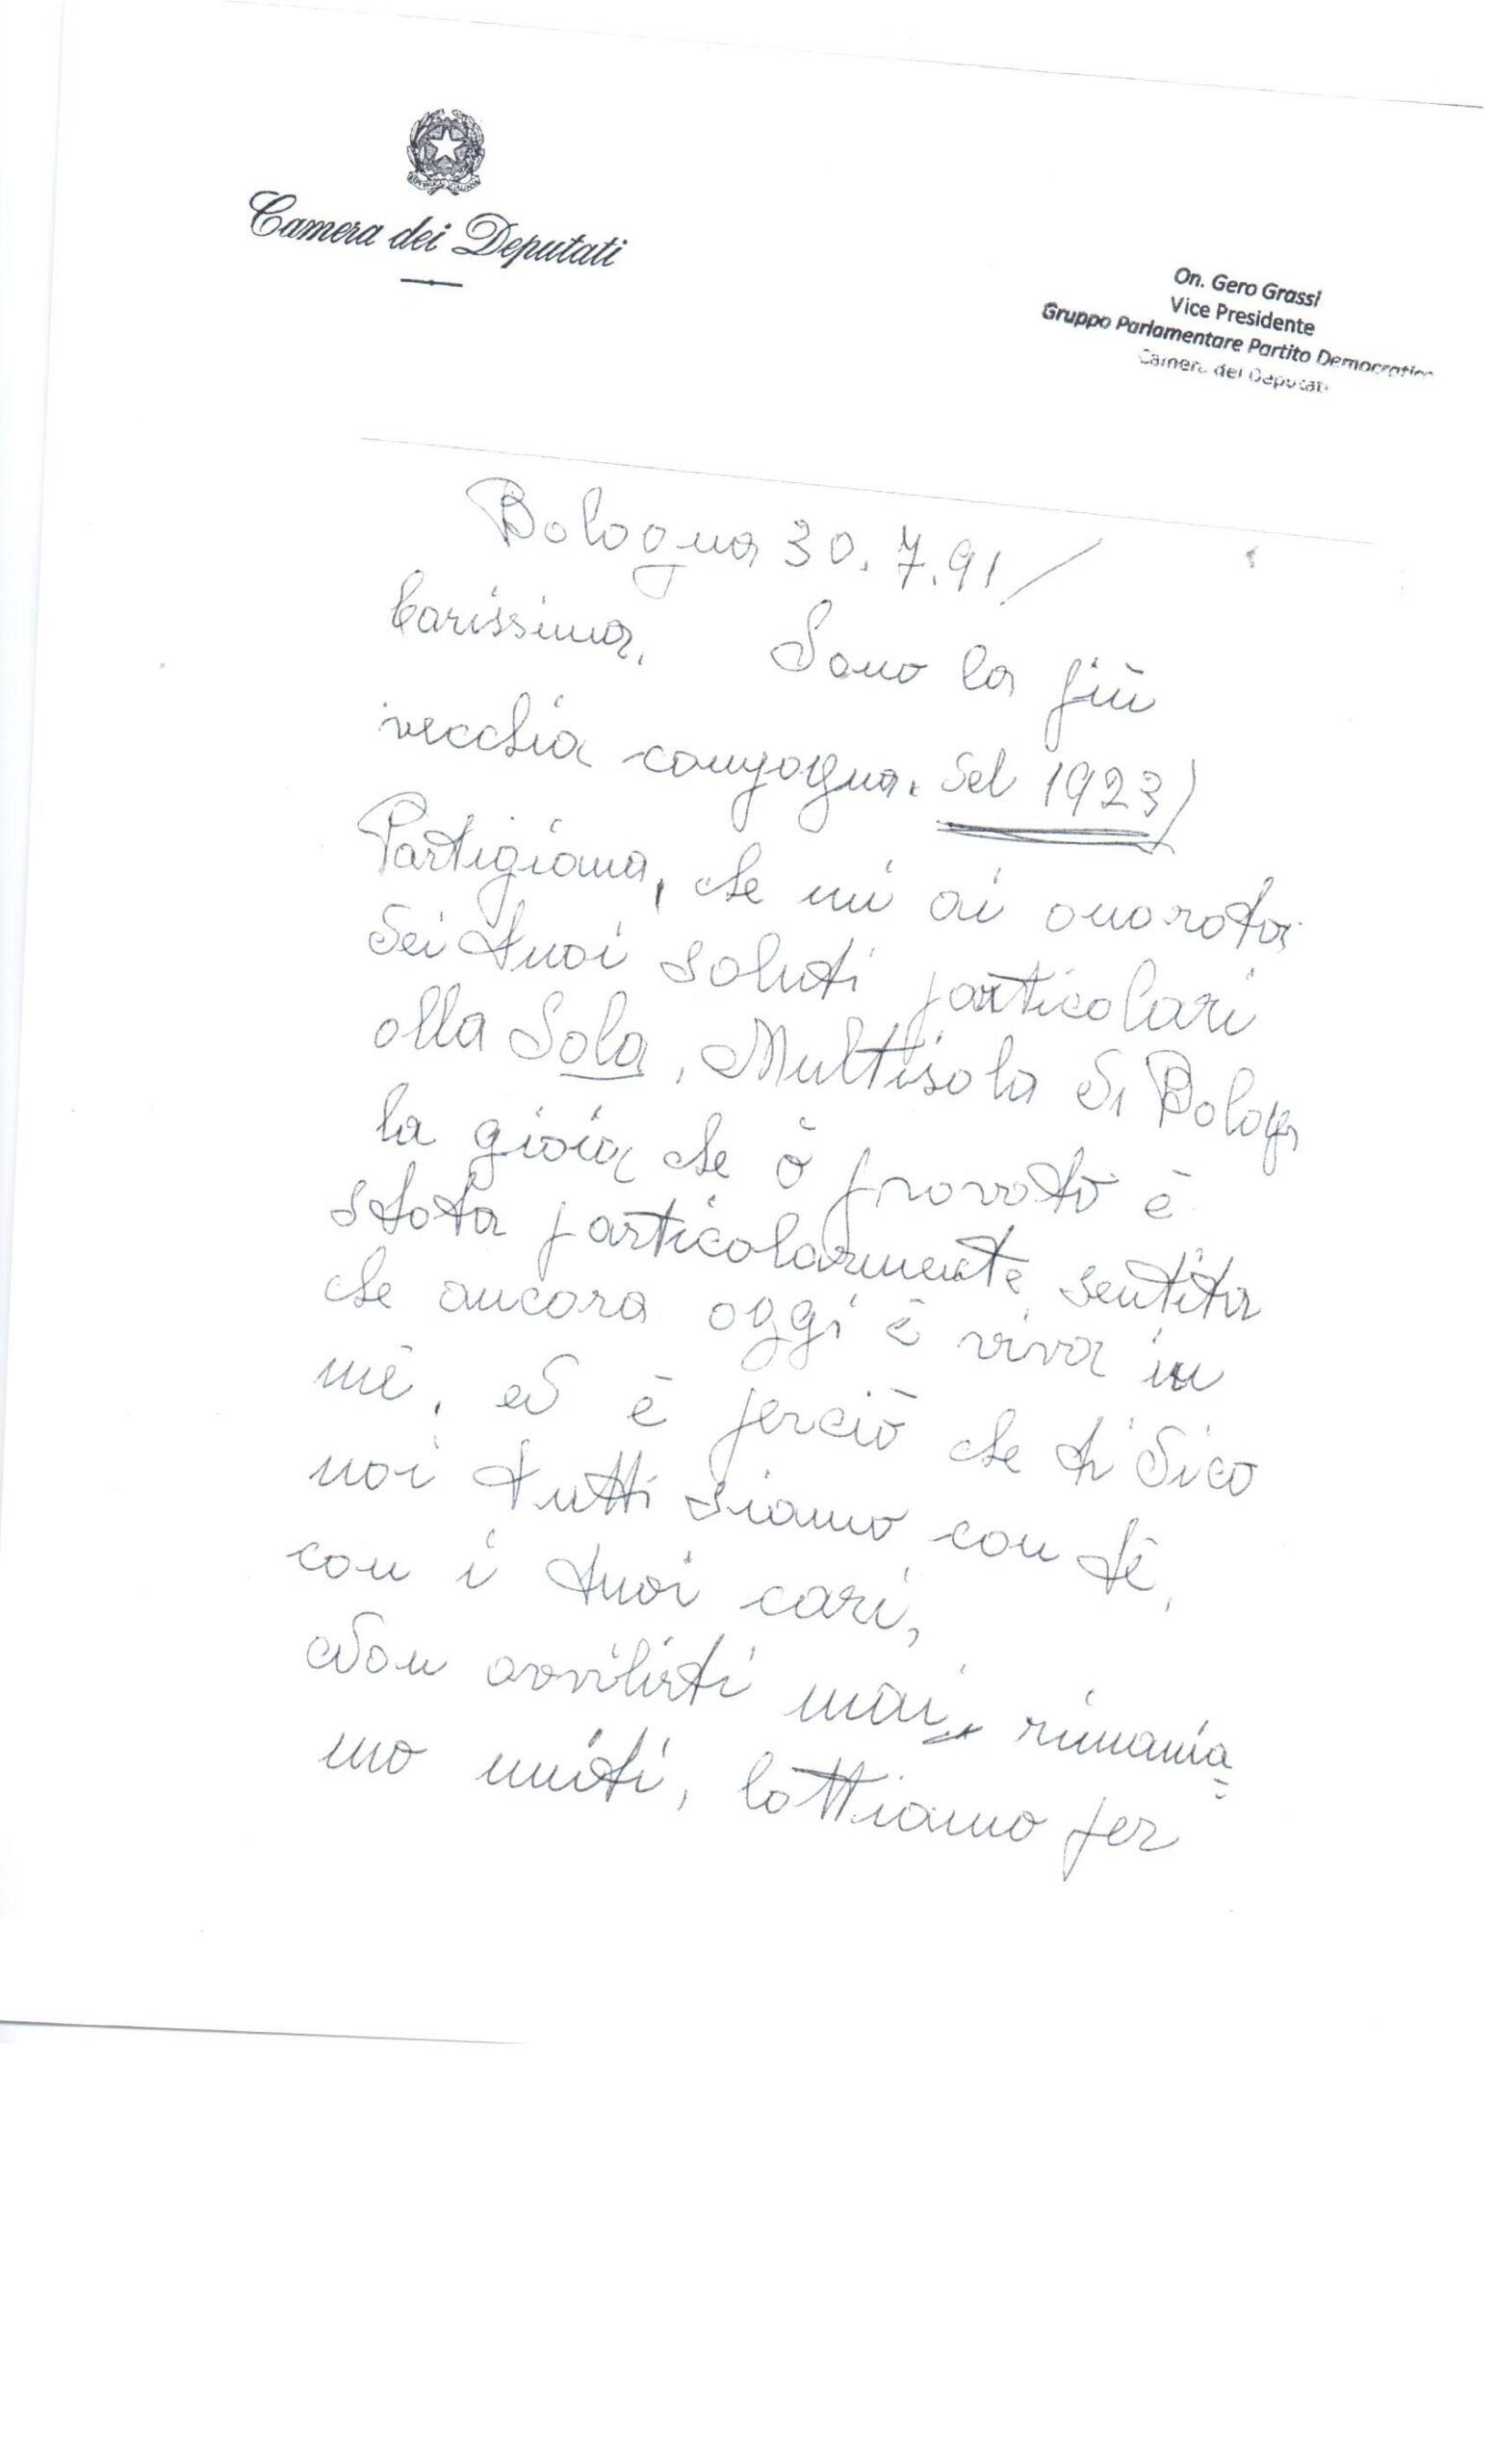 Camera dei Deputati
On. Gero Grassi
Vice Presidente
Gruppo Parlamentare Partito Democratico
Camera dei Deputati
Bologna 30.7.91/
Carissima. Sono la più
vecchia compagna. del 1923/
Partigiana, che mi ai onorata
dei tuoi saluti particolari
alla Sala, Multisala di Bologa
la gioia che ò provato è
stata particolarmente sentita
che ancora oggi è viva in
mè, ed è perciò che ti dico
noi tutti siamo con tè,
con i tuoi cari,
Non avvilirti mai, rimania=
mo uniti, lottiamo per